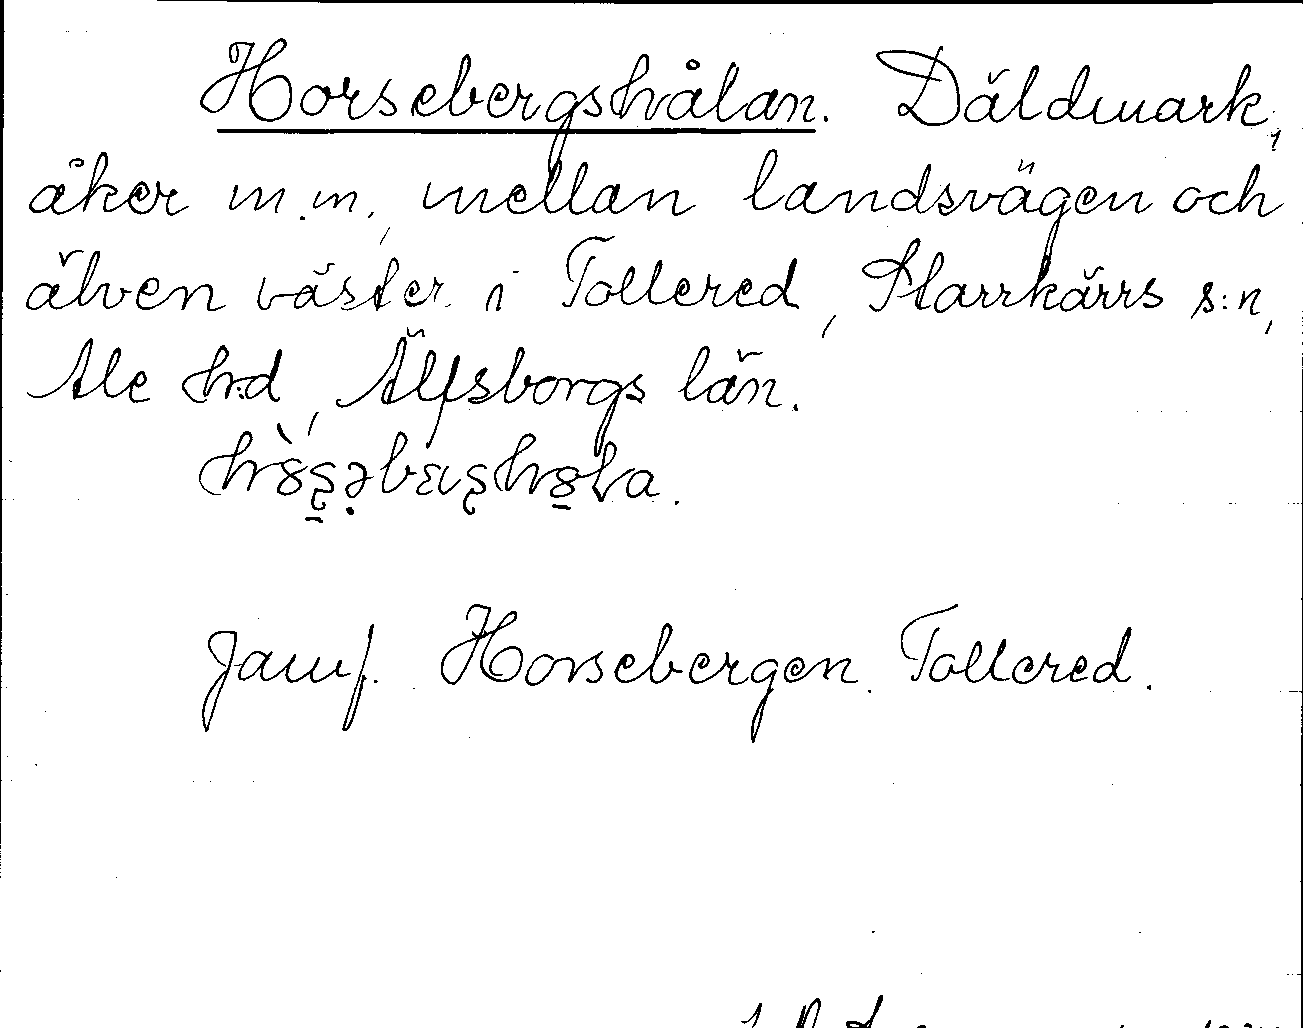 Horsebergshålan. Däldmark,
åker m.m, mellan landsvägen och
älven väster i Tollered, Starrkärrs s:n,
Ale hrd, Älfsborgs län.
Jämf. Horsebergen Tollered.